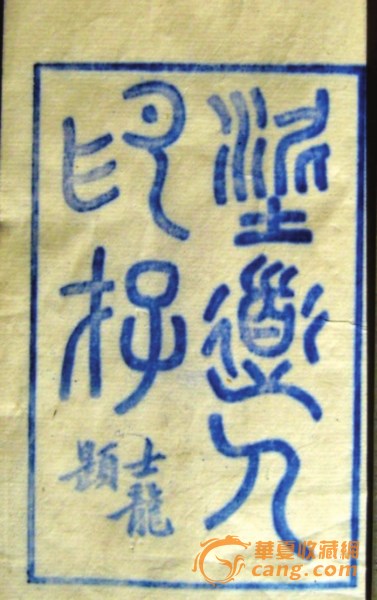 道人
印存
士龍
題
華夏收藏網
cang.com